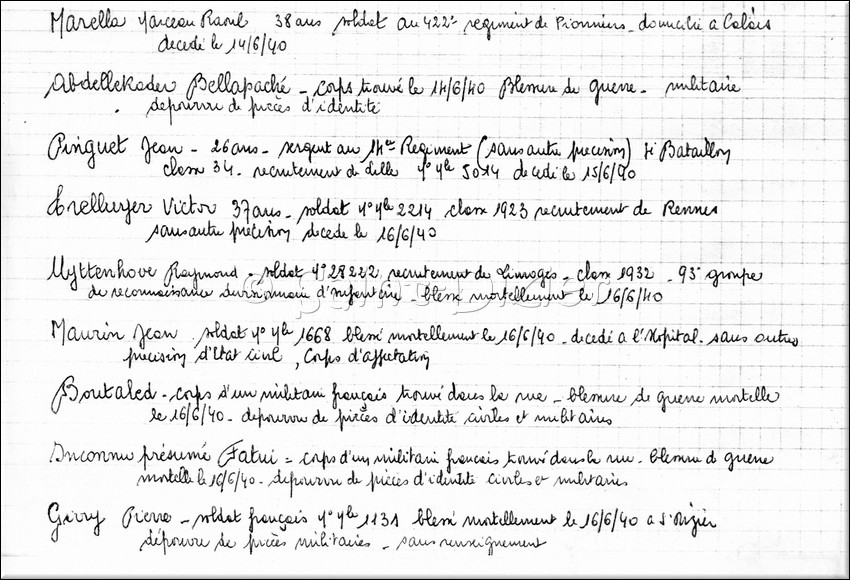 Marella Marceau Raoul 38 ans soldat au 422e regiment de Pionniers - domicilié a Calais
decedé le 14/6/40
Abdellekader Bellapaché - corps trouvé le 14/6/40 Blessure de guerre - militaire
depourvu de pièces d'identité
Pinguet Jean - 26 ans - sergent au 14e Regiment (sans autre precision) Bataillon
classe 34 - recrutement de Lille N° Mle 5014 decedé le 15/6/40
Victor 37 ans - soldat N° Mle 2214 classe 1923 recrutement de Rennes
sans autre precision decede le 16/6/40
Uyttenhove Raymond - soldat N° 28222 recrutement de Limoges - classe 1932 - 93e groupe
de reconnaissance divisionnaire d'infanterie - blessé mortellement le 16/6/40
Maurin Jean soldat N° Mle 1668 blessé mortellement le 16/6/40 - decedé a l'Hopital - sans autres
precision d'Etat civil, Corps d'affectation
Boutaled - corps d'un militaire français trouvé dans la rue - blessure de guerre mortelle
le 16/6/40 - depourvu de pièces d'identité civiles et militaires
Inconnu présumé Fatui = corps d'un militaire francais trouvé dans la rue - blessure de guerre
mortelle le 16/6/40 - depourvu de pièces d'identité civiles et militaires
Girry Pierre - soldat français N° Mle 1131 blessé mortellement le 16/6/40 a
dépourvu de pièces militaires - sans renseignement